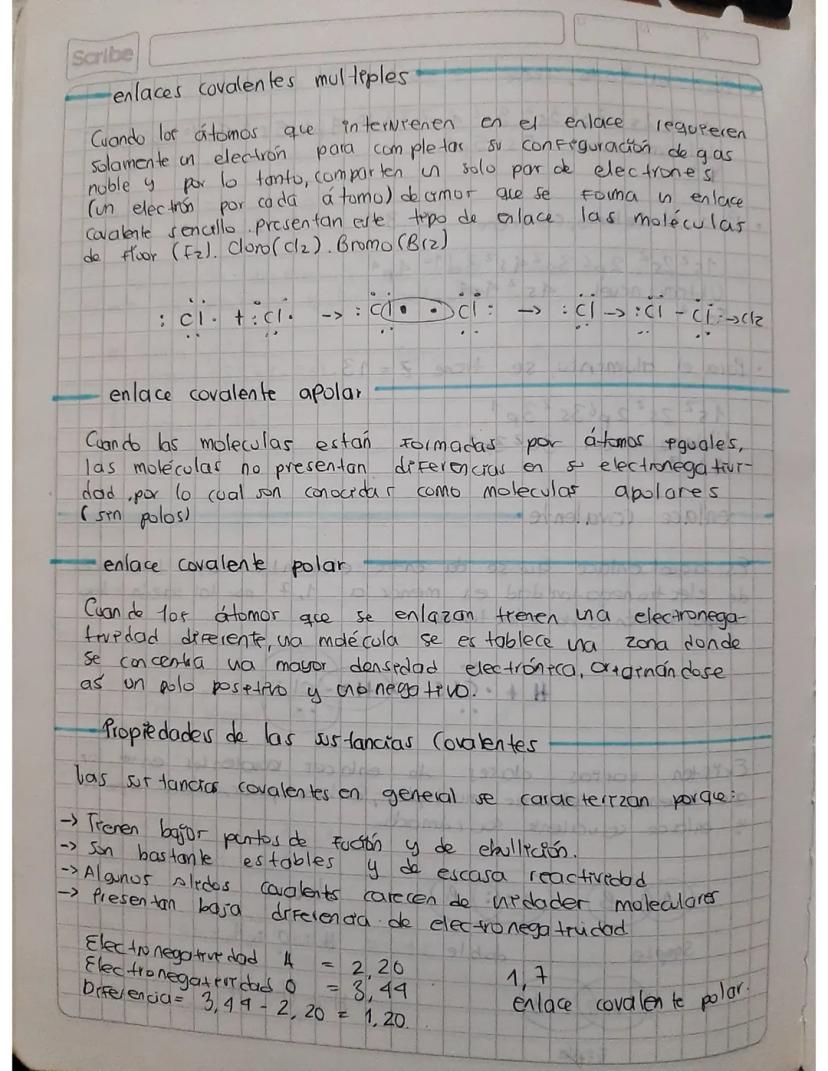 Scribe
enlaces covalentes multiples
Cuando los átomos que intervienen en el enlace requieren
solamente un electrón para completar su configuración de gas
noble y por lo tanto, comparten un solo par de electrones
(un electrón por cada átomo) de amor que se forma un enlace
covalente sencillo. presentan este tipo de enlace las moléculas
de fluor (F2). Cloro (Cl2). Bromo (Br2)
: Cl · + : Cl · -> : Cl · · Cl : -> : Cl -> : Cl - Cl : -> Cl2
enlace covalente apolar
Cuando las moleculas estan formadas por átomos iguales,
las moléculas no presentan diferencias en s electronegativi-
dad, por lo cual son conocidas como moleculas apolares
(sin polos)
enlace covalente polar
Cuando los átomos que se enlazan tienen una electronega-
tividad diferente, una molécula se establece una zona donde
se concentra una mayor densidad electrónica, originándose
as un polo positivo y uno negativo.
Propiedades de las sustancias covalentes
las sustancias covalentes en general se caracterizan porque:
-> Tienen bajos puntos de fución y de ebullición.
-> Son bastante estables y de escasa reactividad
-> Algunos solidos covalents carecen de unidades moleculares
-> Presentan baja diferencia de electronegatividad
Electronegatividad H = 2,20
Electronegatividad O = 3,44
Diferencia = 3,44 - 2,20 = 1,20.
1,7
enlace covalente polar.